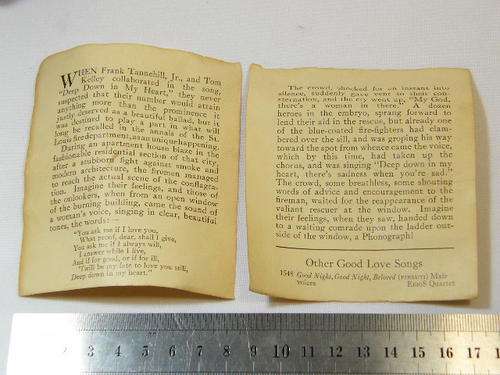 WHEN Frank Tannehill, Jr., and Tom
Kelley collaborated in the song,
"Deep Down in My Heart," they never
suspected that their number would attain
anything more than the prominence it
justly deserved as a beautiful ballad, but it
was destined to play a part in what will
long be recalled in the annals of the St.
Louis fire department, as an unique happening.
During an apartment house blaze in the
fashionable residential section of that city,
after a stubborn fight against smoke and
modern architecture, the firemen managed
to reach the actual scene of the conflagra-
tion. Imagine their feelings, and those of
the onlookers, when from an open window
of the burning building, came the sound of
a woman's voice, singing in clear, beautiful
tones, the words:—
"You ask me if I love you,
What proof, dear, shall I give,
You ask me if I always will,
I answer while I live,
And if for good, or if for ill,
'Twill be my fate to love you still,
Deep down in my heart."
The crowd, shocked for an instant into
silence, suddenly gave vent to their con-
sternation, and the cry went up, "My God,
there's a woman in there." A dozen
heroes in the embryo, sprang forward to
lend their aid in the rescue, but already one
of the blue-coated fire-fighters had clam-
bered over the sill, and was groping his way
toward the spot from whence came the voice,
which by this time, had taken up the
chorus, and was singing "Deep down in my
heart, there's sadness when you're sad."
The crowd, some breathless, some shouting
words of advice and encouragement to the
fireman, waited for the reappearance of the
valiant rescuer at the window. Imagine
their feelings, when they saw, handed down
to a waiting comrade upon the ladder out-
side of the window, a Phonograph!
Other Good Love Songs
1548 Good Night, Good Night, Beloved Male
Voices Quartet
3 4 5 6 7 8 9 10 11 12 13 14 15 16 17